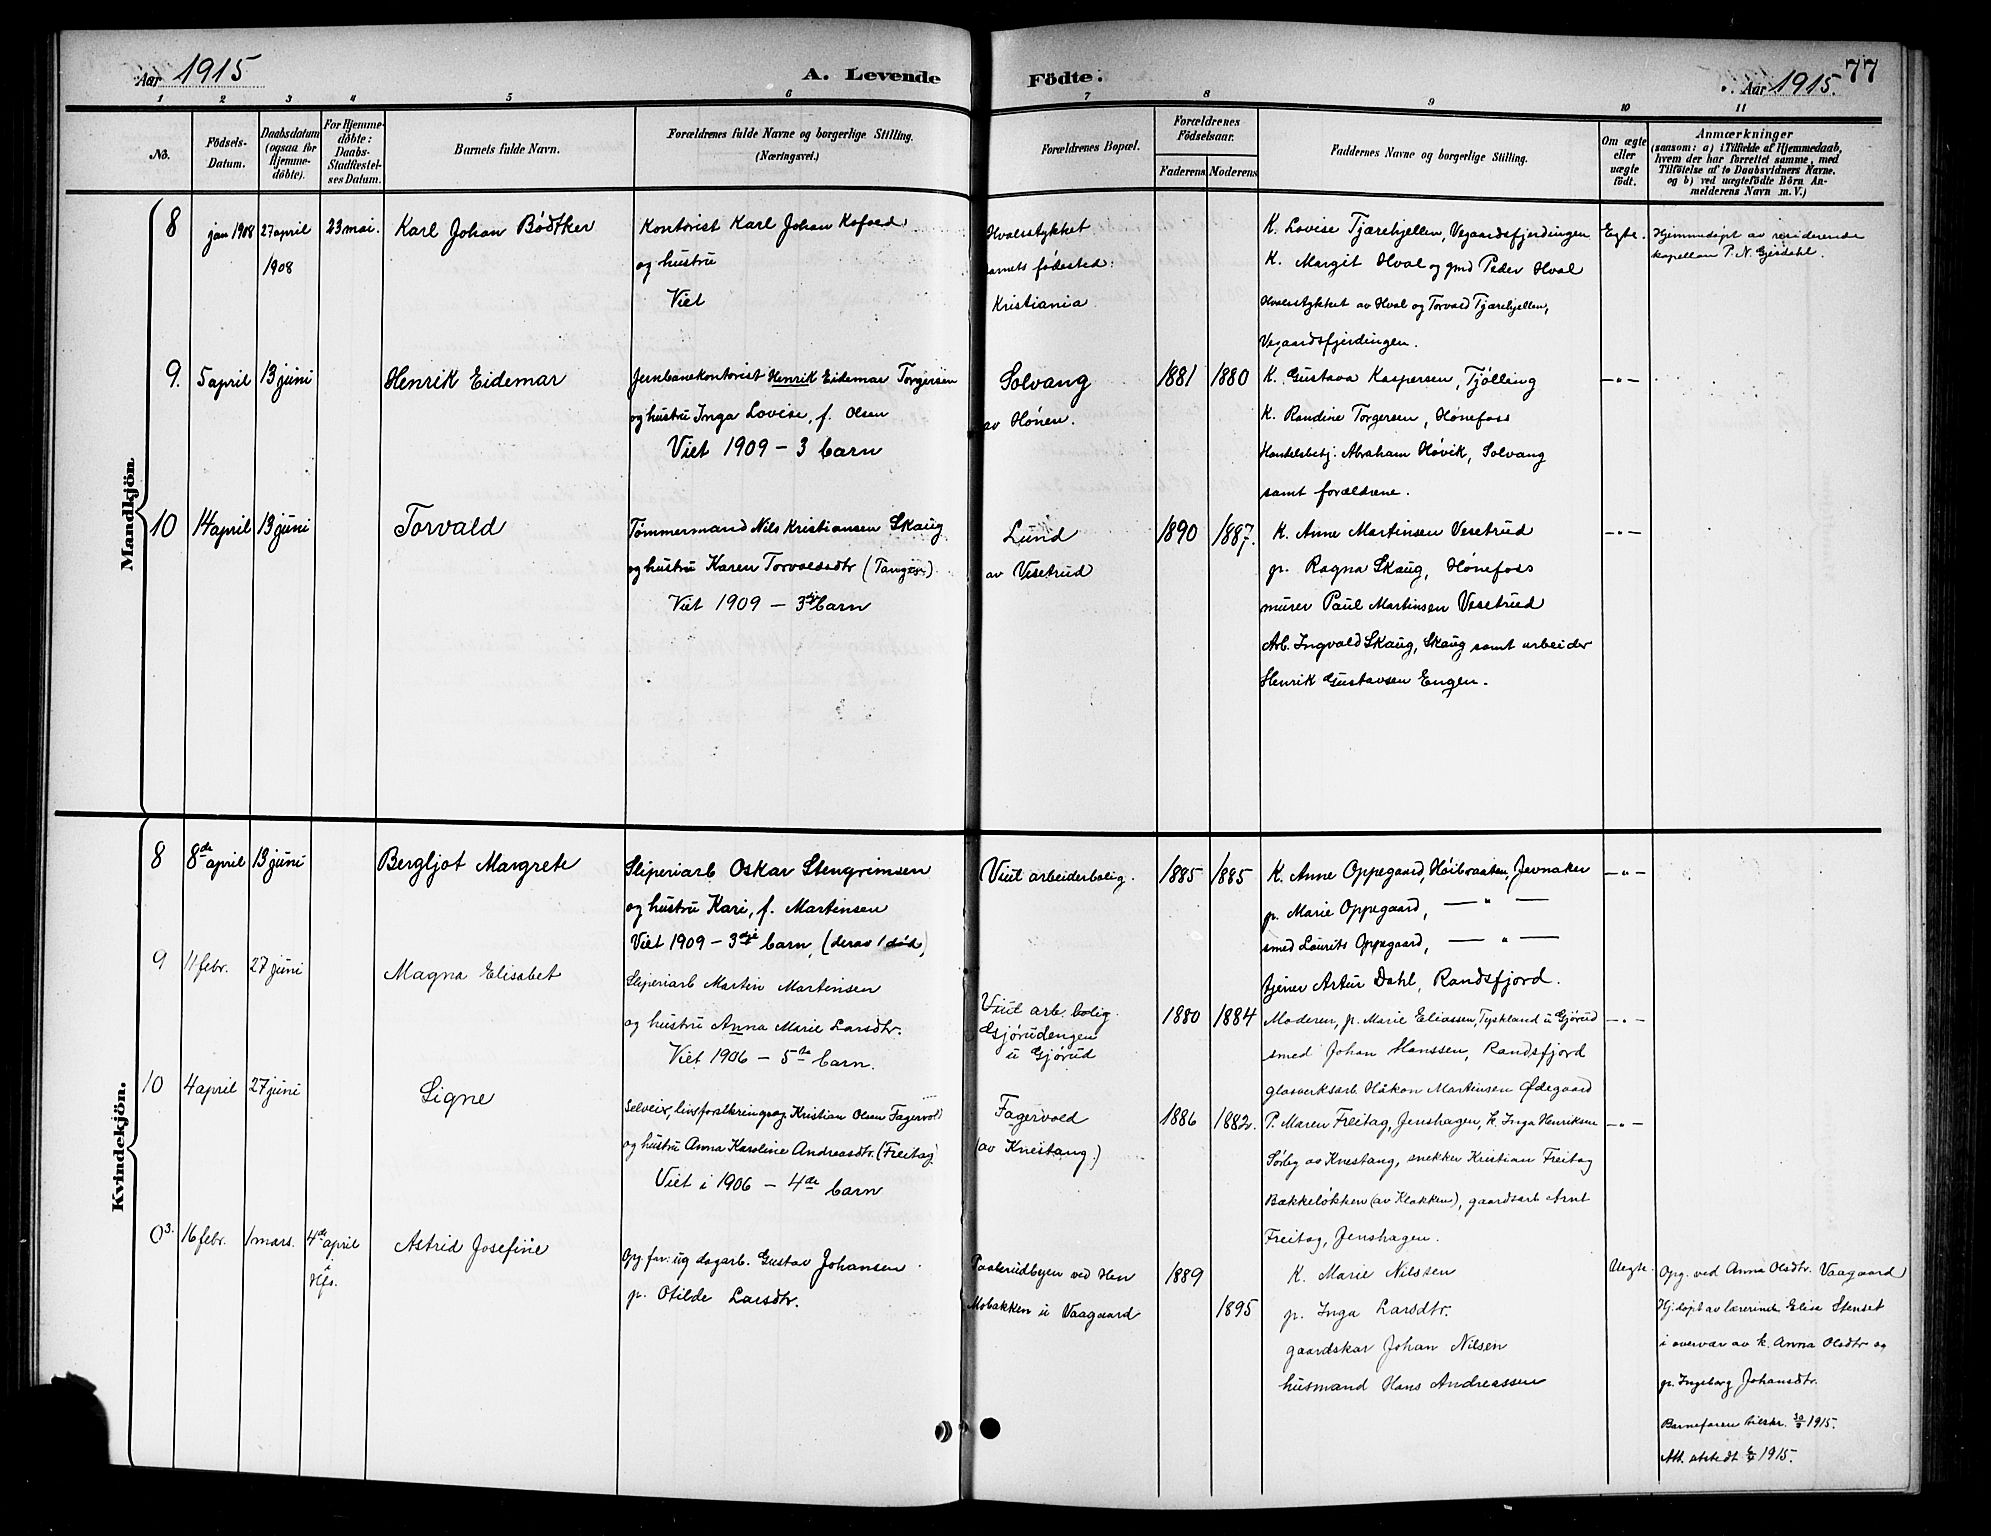 Aar 1915
A. Levende Födte.
Aar 1915.
77
1 2 3 4 5 6 7 8 9 10 11
No.
Födsels-
Datum.
Daabsdatum
(ogsaa for
Hjemme-
döbte).
For Hjemme-
döbte:
Daabs-
Stadfæstel-
ses Datum.
Barnets fulde Navn.
Forældrenes fulde Navne og borgerlige Stilling.
(Næringsvei.)
Forældrenes Bopæl.
Forældrenes
Födselsaar.
Faderens Moderens
Faddernes Navne og borgerlige Stilling.
Om ægte
eller
uægte
födt.
Anmærkninger
(saasom: a) i Tilfælde af Hjemmedaab,
hvem der har forrettet samme, med
Tilföielse af to Daabsvidners Navne.
og b) ved uægtefödte Börn An-
melderens Navn m. V.)
Mandkjön
8 jan 1908 27 april
1908
23 mai.
Karl Johan Bödtker
Kontorist Karl Johan Kofoed
og hustru
Viet
Hvalsstykket
arnets fødested:
Kristiania
K. Lovise Tjærehjellen, Vegaardsfjerdingen
K. Margit Hval og gmd Peder Hval
Hvalsstykket av Hval og Torvald Tjærehjellen,
Vegaardsfjerdingen.
Egte.
Hjemmedøpt av residerende
kapellan P. N. Gjesdahl.
9. 5 april 13 juni
Henrik Eidemar
Jernbanekontorist Henrik Eidemar Torgersen
og hustru Inga Lovise, f. Olsen
Viet 1909 – 3 barn
Solvang
av Hönen.
1881 1880
K. Gustava Kaspersen, Tjölling
K. Randine Torgersen, Hönefoss
Handelsbetj. Abraham Hövik, Solvang
samt forældrene.
— " —
10 14 april 13 juni
Torvald
Tömmermand Nils Kristiansen Skaug
og hustru Karen Torvaldsdtr (Tangen).
Viet 1909 – 3die barn
Lund
av Vesetrud
1890 1887.
K. Anne Martinsen Vesetrud
p. Ragna Skaug, Hönefoss
murer Paul Martinsen Vesetrud
Arb. Ingvald Skaug, Skaug samt arbeider
Henrik Gustavsen Engen.
— " —
Kvindekjön.
8 8de april 13 juni
Bergljot Margrete
Sliperiarb Oskar Stengrimsen
og hustru Kari, f. Martinsen
Viet 1909 – 3die barn, (derav 1 död,)
Viul arbeiderbolig.
1885 1885
K. Anne Oppegaard, Höibraaten, Jevnaker
p. Marie Oppegaard, — " —
smed Laurits Oppegaard, — " —
tjener Artur Dahl, Randsfjord.
— " —
9 11 febr. 27 juni
Magna Elisabet
Sliperiarb Martin Martinsen
og hustru Anna Marie Larsdtr.
Viet 1906 – 5te barn.
Viul arb. bolig.
Gjörudengen
u Gjörud
1880 1884
Moderen, p. Marie Eliassen, Tyskland u Gjörud
smed Johan Hanssen, Randsfjord
glasverksarb. Håkon Martinsen Ødegaard
— " —
10 4 april 27 juni
Signe
Selveier, livsforsikringsag Kristian Olsen Fagervold
og hustru Anna Karoline Andreasdtr. (Freitag)
Viet i 1906 – 4de barn
Fagervold
(av Knestang.)
1886 1882.
P. Maren Freitag, Jenshagen, k. Inga Henriksen
Sørby av Knestang, snekker Kristian Freitag
Bækkelökken (av Klækken), gaardsarb Arnt
Freitag, Jenshagen.
— " —
03. 16 febr. 1 mars. 4de april
i
Hfs.
Astrid Josefine
Opg. far: ug dagarb. Gustav Johansen
p. Otilde Larsdtr.
Paalerudbyen ved Hen
Mobakken u Vaagaard
1889
1895
K. Marie Nilssen
p. Inga Larsdtr.
gaardskar Johan Nilsen
husmand Hans Andreassen
Uegte.
Opg. ved Anna Olsdtr. Vaagaard
Hj. døpt av lærerinde Elise Stenset
i overvær av k. Anna Olsdtr og
p. Ingeborg Johansdtr.
Barnefaren tilskr. 1915.
Att. utstedt 1915.